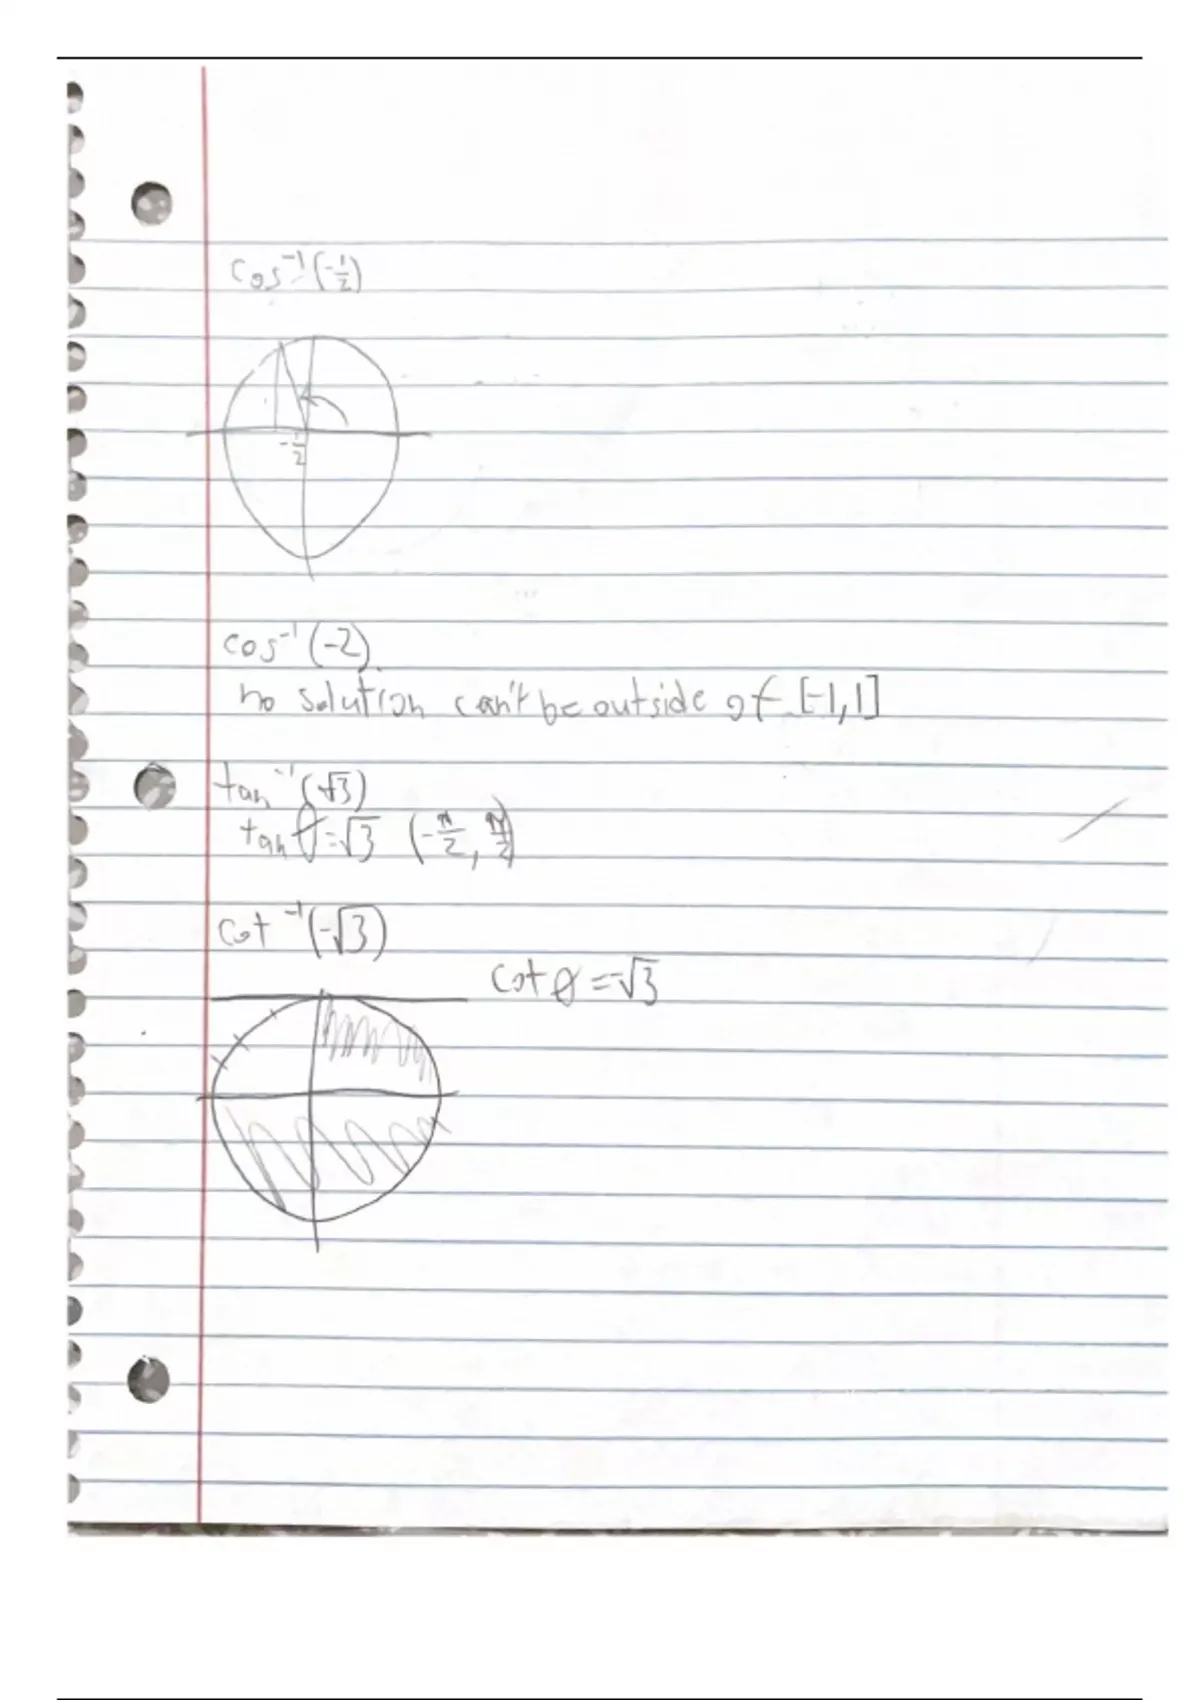 cos⁻¹(-1/2)
-1/2
cos⁻¹(-2)
no solution can't be outside of [-1,1]
tan⁻¹(√3)
tan θ=√3 (-π/2, π/2)
cot⁻¹(-√3)
cot θ=-√3